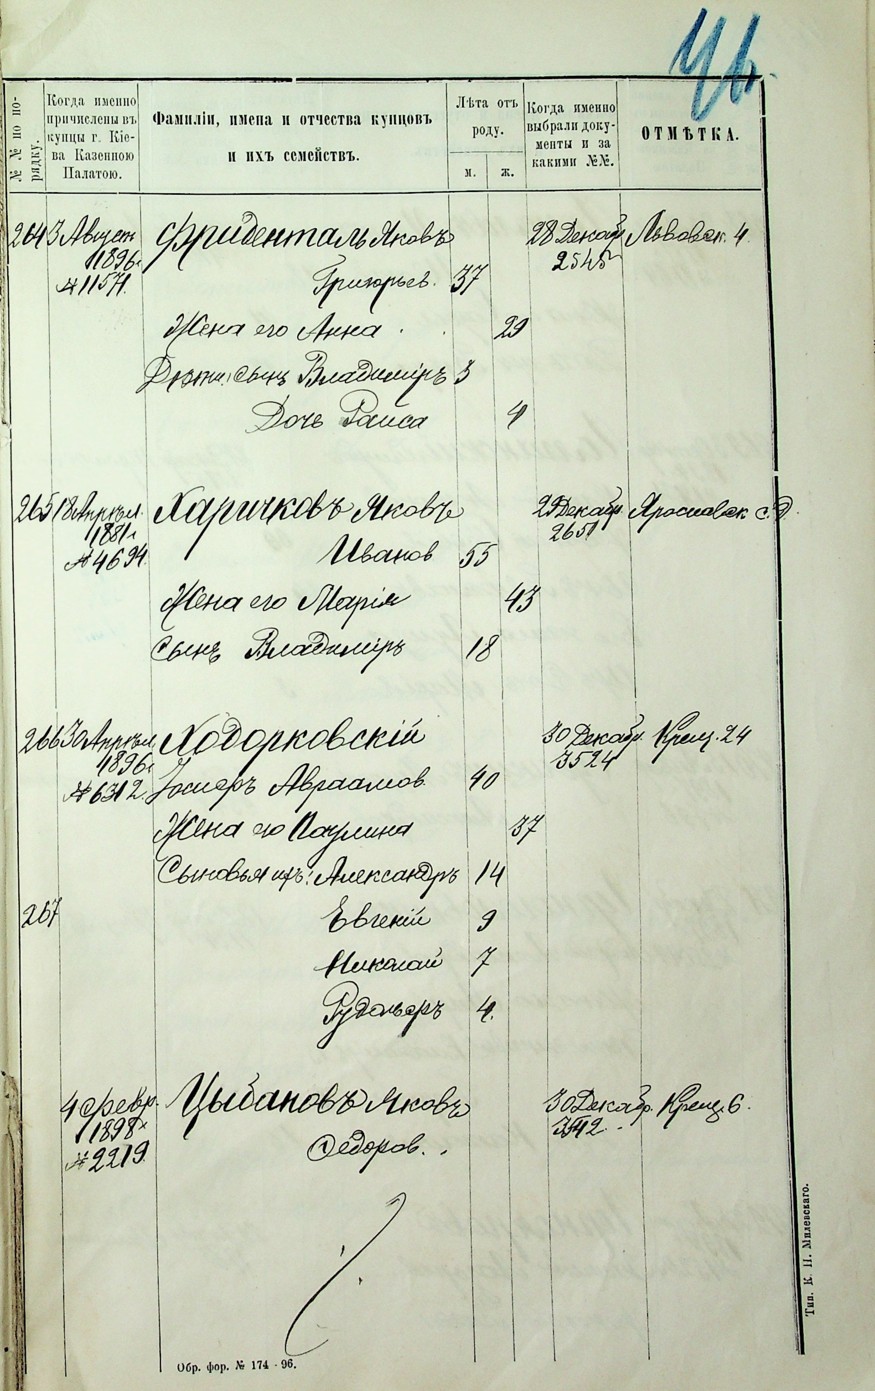 46.
№№ по по-
рядку.
Когда именно
причислены въ
купцы г. Кіе-
ва Казенною
Палатою.
Фамиліи, имена и отчества купцовъ
и ихъ семействъ.
Лѣта отъ
роду.
м.
ж.
Когда именно
выбрали доку-
менты и за
какими №№.
ОТМѢТКА.
264 3 Август Фриденталь Яковъ 28 Декабр. Львовск. 4
1896 г 2545
№ 11571. Григорьев. 37
Жена его Анна 29
Дѣти: сынъ Владиміръ 3
Дочь Раиса 4
265 18 Апрѣл. Харичковъ Яковъ 29 Декабр. Ярославск с. д.
1881 г 2651
№ 4694. Иванов 55
Жена его Марія 43
Сынъ Владиміръ 18
266 30 Апрѣл. Ходорковскій 30 Декабр. Крещ. 24
1896 г 3524
№ 6312. Іосифъ Авраамов. 40
Жена его Паулина 37
Сыновья ихъ: Александръ 14
267 Евгеній 9
Николай 7
Рудольфъ 4.
4 Февр. Цыбановъ Яковъ 30 Декабр. Крещ. 6.
1898 г 3542.
№ 2219. Федоров.
Обр. фор. № 174 - 96.
Тип. К. Н. Милевскаго.